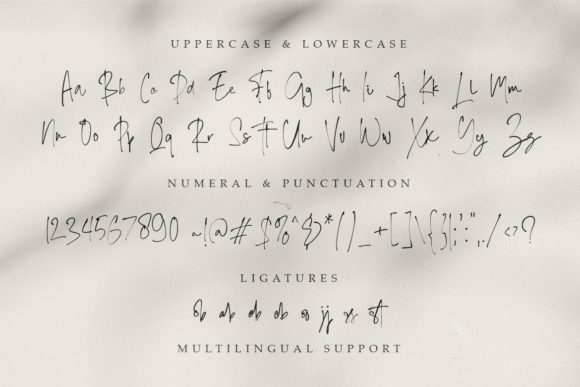 UPPERCASE & LOWERCASE
Aa Bb Cc Dd Ee Ff Gg Hh Ii Jj Kk Ll Mm
Nn Oo Pp Qq Rr Ss Tt Uu Vv Ww Xx Yy Zz
NUMERAL & PUNCTUATION
1234567890 ~!@#$%^&)*()_+[]\{}|;:'",./<>?
LIGATURES
MULTILINGUAL SUPPORT